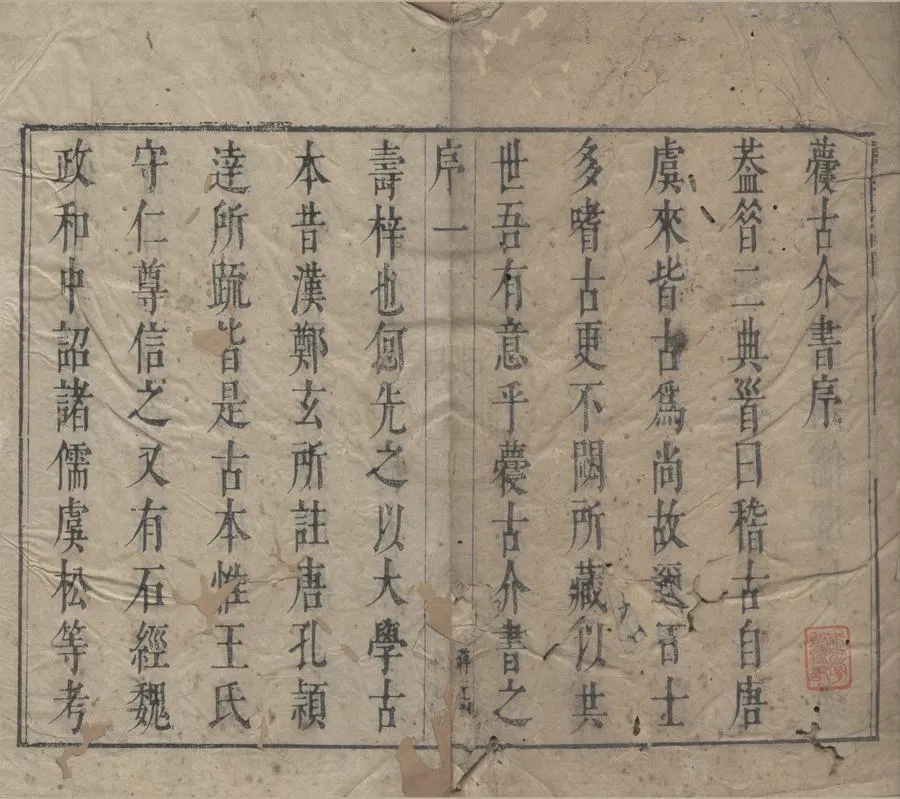 古介書序
葢二典曰稽古自唐
虞來皆古爲尚故士
多嗜古更不閟所藏以共
世吾有意乎古介書之
序一
壽梓也何先之以大學古
本昔漢鄭玄所註唐孔穎
逹所疏皆是古本惟王氏
守仁尊信之又有石經魏
政和中詔諸儒虞松等考